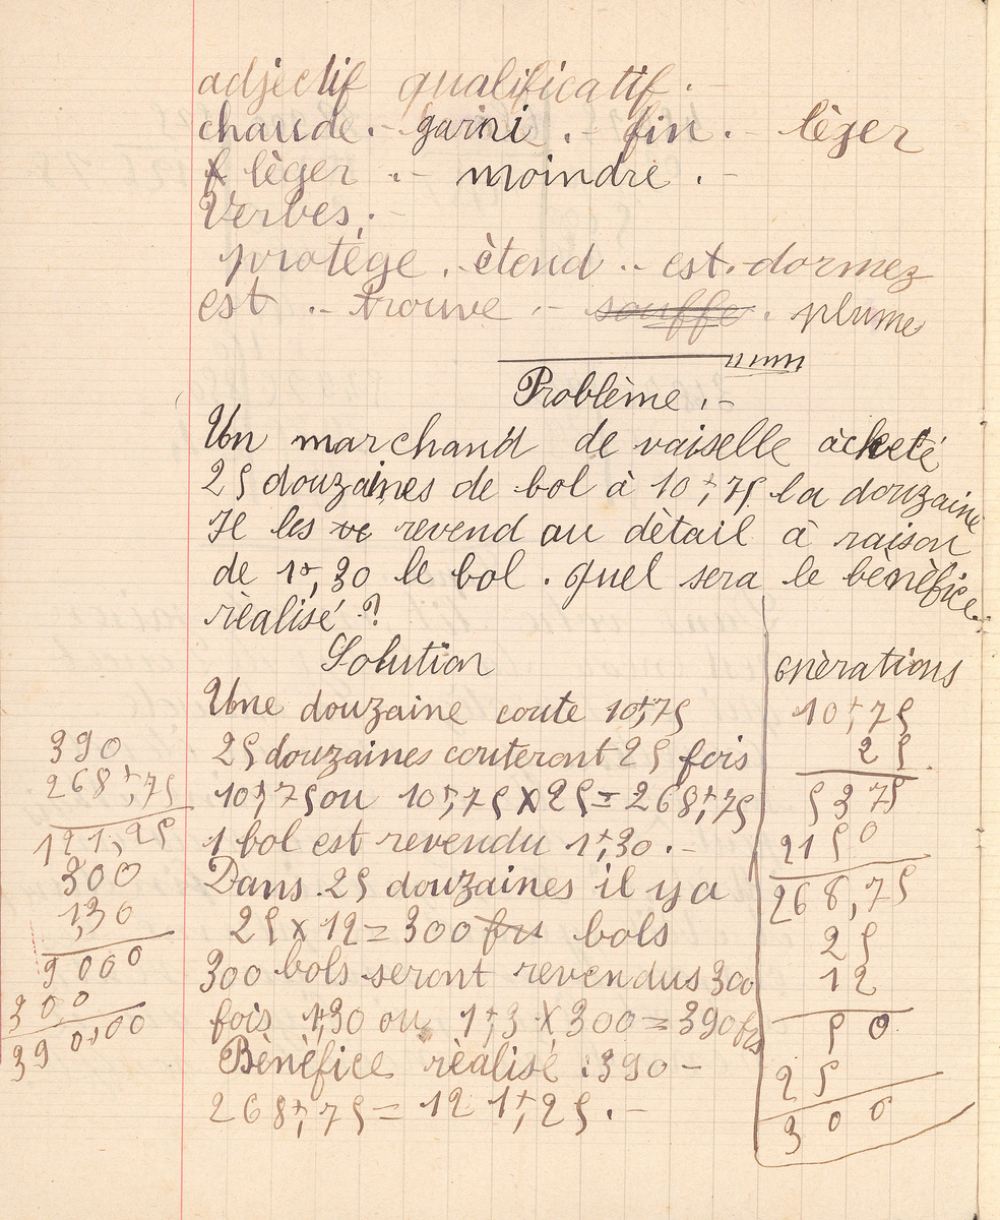 adjectif qualificatif. -
chaude. - garni. - fin. - lèger
lèger. - moindre. -
Verbes. -
protège. - ètend. - est. - dormez
est. - trouve. - souffe. plume
Problème. -
Un marchand de vaiselle àcheté
25 douzaines de bol à 10f,75 la douzaine
Il les ve revend au dètail à raison
de 1f,30 le bol. quel sera le bènèfice
rèalisé ?
Solution
Une douzaine coute 10f,75
25 douzaines couteront 25 fois
10f,75 ou 10f,75 x 25 = 268f,75
1 bol est revendu 1f,30. -
Dans 25 douzaines il y a
25 x 12 = 300 frs bols
300 bols seront revendus 300
fois 1f,30 ou 1f,3 x 300 = 390 frs
Bènèfice rèalisé : 390 -
268f,75 = 121f,25. -
opèrations
10f,75
25
5375
2150
268,75
25
12
50
25
300
390
268f,75
121,25
300
1,30
9000
300
390,00